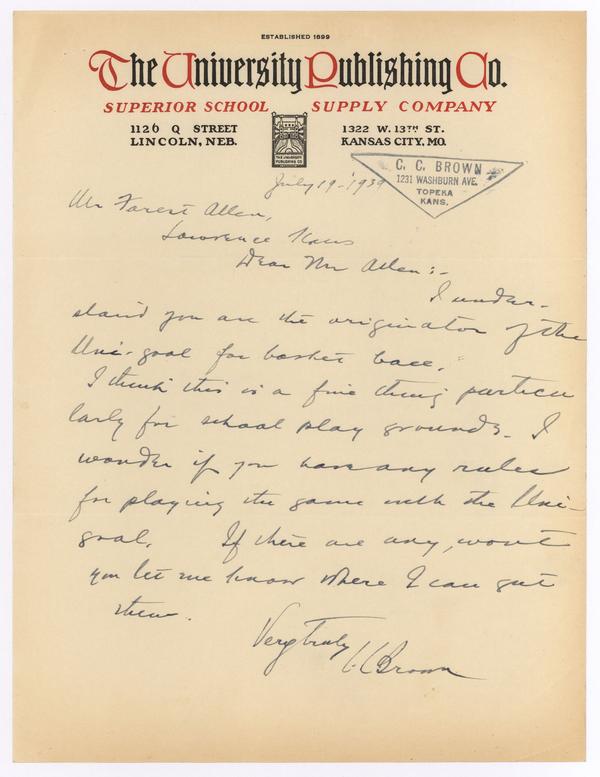 ESTABLISHED 1899
The University Publishing Co.
SUPERIOR SCHOOL SUPPLY COMPANY
1126 Q STREET
LINCOLN, NEB.
THE UNIVERSITY
PUBLISHING CO
1322 W. 13TH ST.
KANSAS CITY, MO.
C. C. BROWN
1231 WASHBURN AVE.
TOPEKA
KANS.
July 19-1939
Mr Forest Allen,
Lawrence Kans
Dear Mr Allen:-
I under-
stand you are the originator of the
Uni-goal for basket ball.
I think this is a fine thing particu
larly for school play grounds. I
wonder if you have any rules
for playing the game with the Uni-
goal. If there are any, wont
you let me know where I can get
them.
Very truly
C C Brown